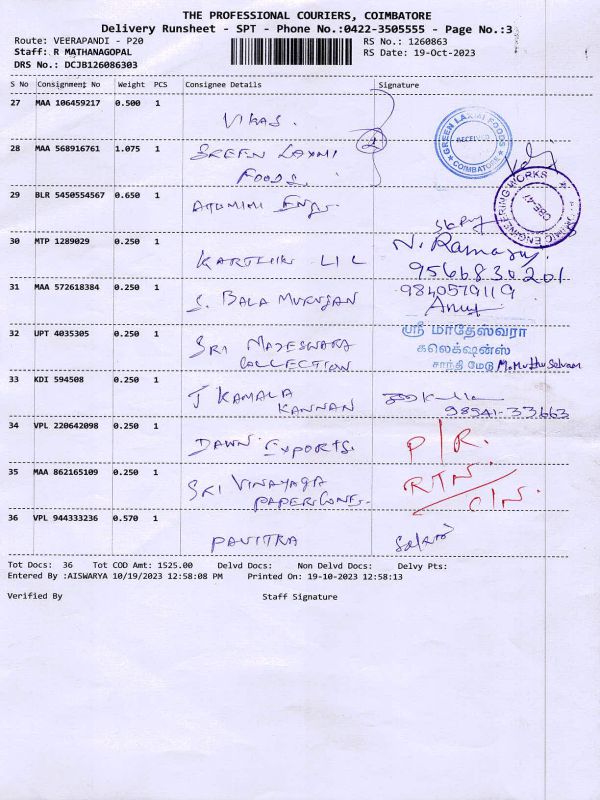 THE PROFESSIONAL COURIERS, COIMBATORE
Delivery Runsheet - SPT - Phone No.:0422-3505555 - Page No.:3
Route: VEERAPANDI - P20 RS No.: 1260863
Staff: R MATHANAGOPAL RS Date: 19-Oct-2023
DRS No.: DCJB126086303
S No Consignment No Weight PCS Consignee Details Signature
27 MAA 106459217 0.500 1
VIKAS.
28 MAA 568916761 1.075 1
SREEN LAXMI
FOODS.
GREEN LAXMI FOODS
RECEIVED
COIMBATORE
29 BLR 5450554567 0.650 1
ENGINEERING WORKS
CBE-47
30 MTP 1289029 0.250 1
KARTHIK LIC
N. Ramasamy
9566830201
31 MAA 572618384 0.250 1
S. BALA MURUGAN
9840579119
32 UPT 4035305 0.250 1
SRI MADESWARA
COLLECTION
ஸ்ரீ மாதேஸ்வரா
கலெக்ஷன்ஸ்
சாந்தி மேடு M.Muthu Selvam
33 KDI 594508 0.250 1
T KAMALA
KANNAN
98941-33663
34 VPL 220642098 0.250 1
DAWN EXPORTS.
P/R.
35 MAA 862165109 0.250 1
SRI VINAYAGA
PAPER CONES.
RTN.
C/N.
36 VPL 944333236 0.570 1
PAVITRA
Tot Docs: 36 Tot COD Amt: 1525.00 Delvd Docs: Non Delvd Docs: Delvy Pts:
Entered By :AISWARYA 10/19/2023 12:58:08 PM Printed On: 19-10-2023 12:58:13
Verified By Staff Signature